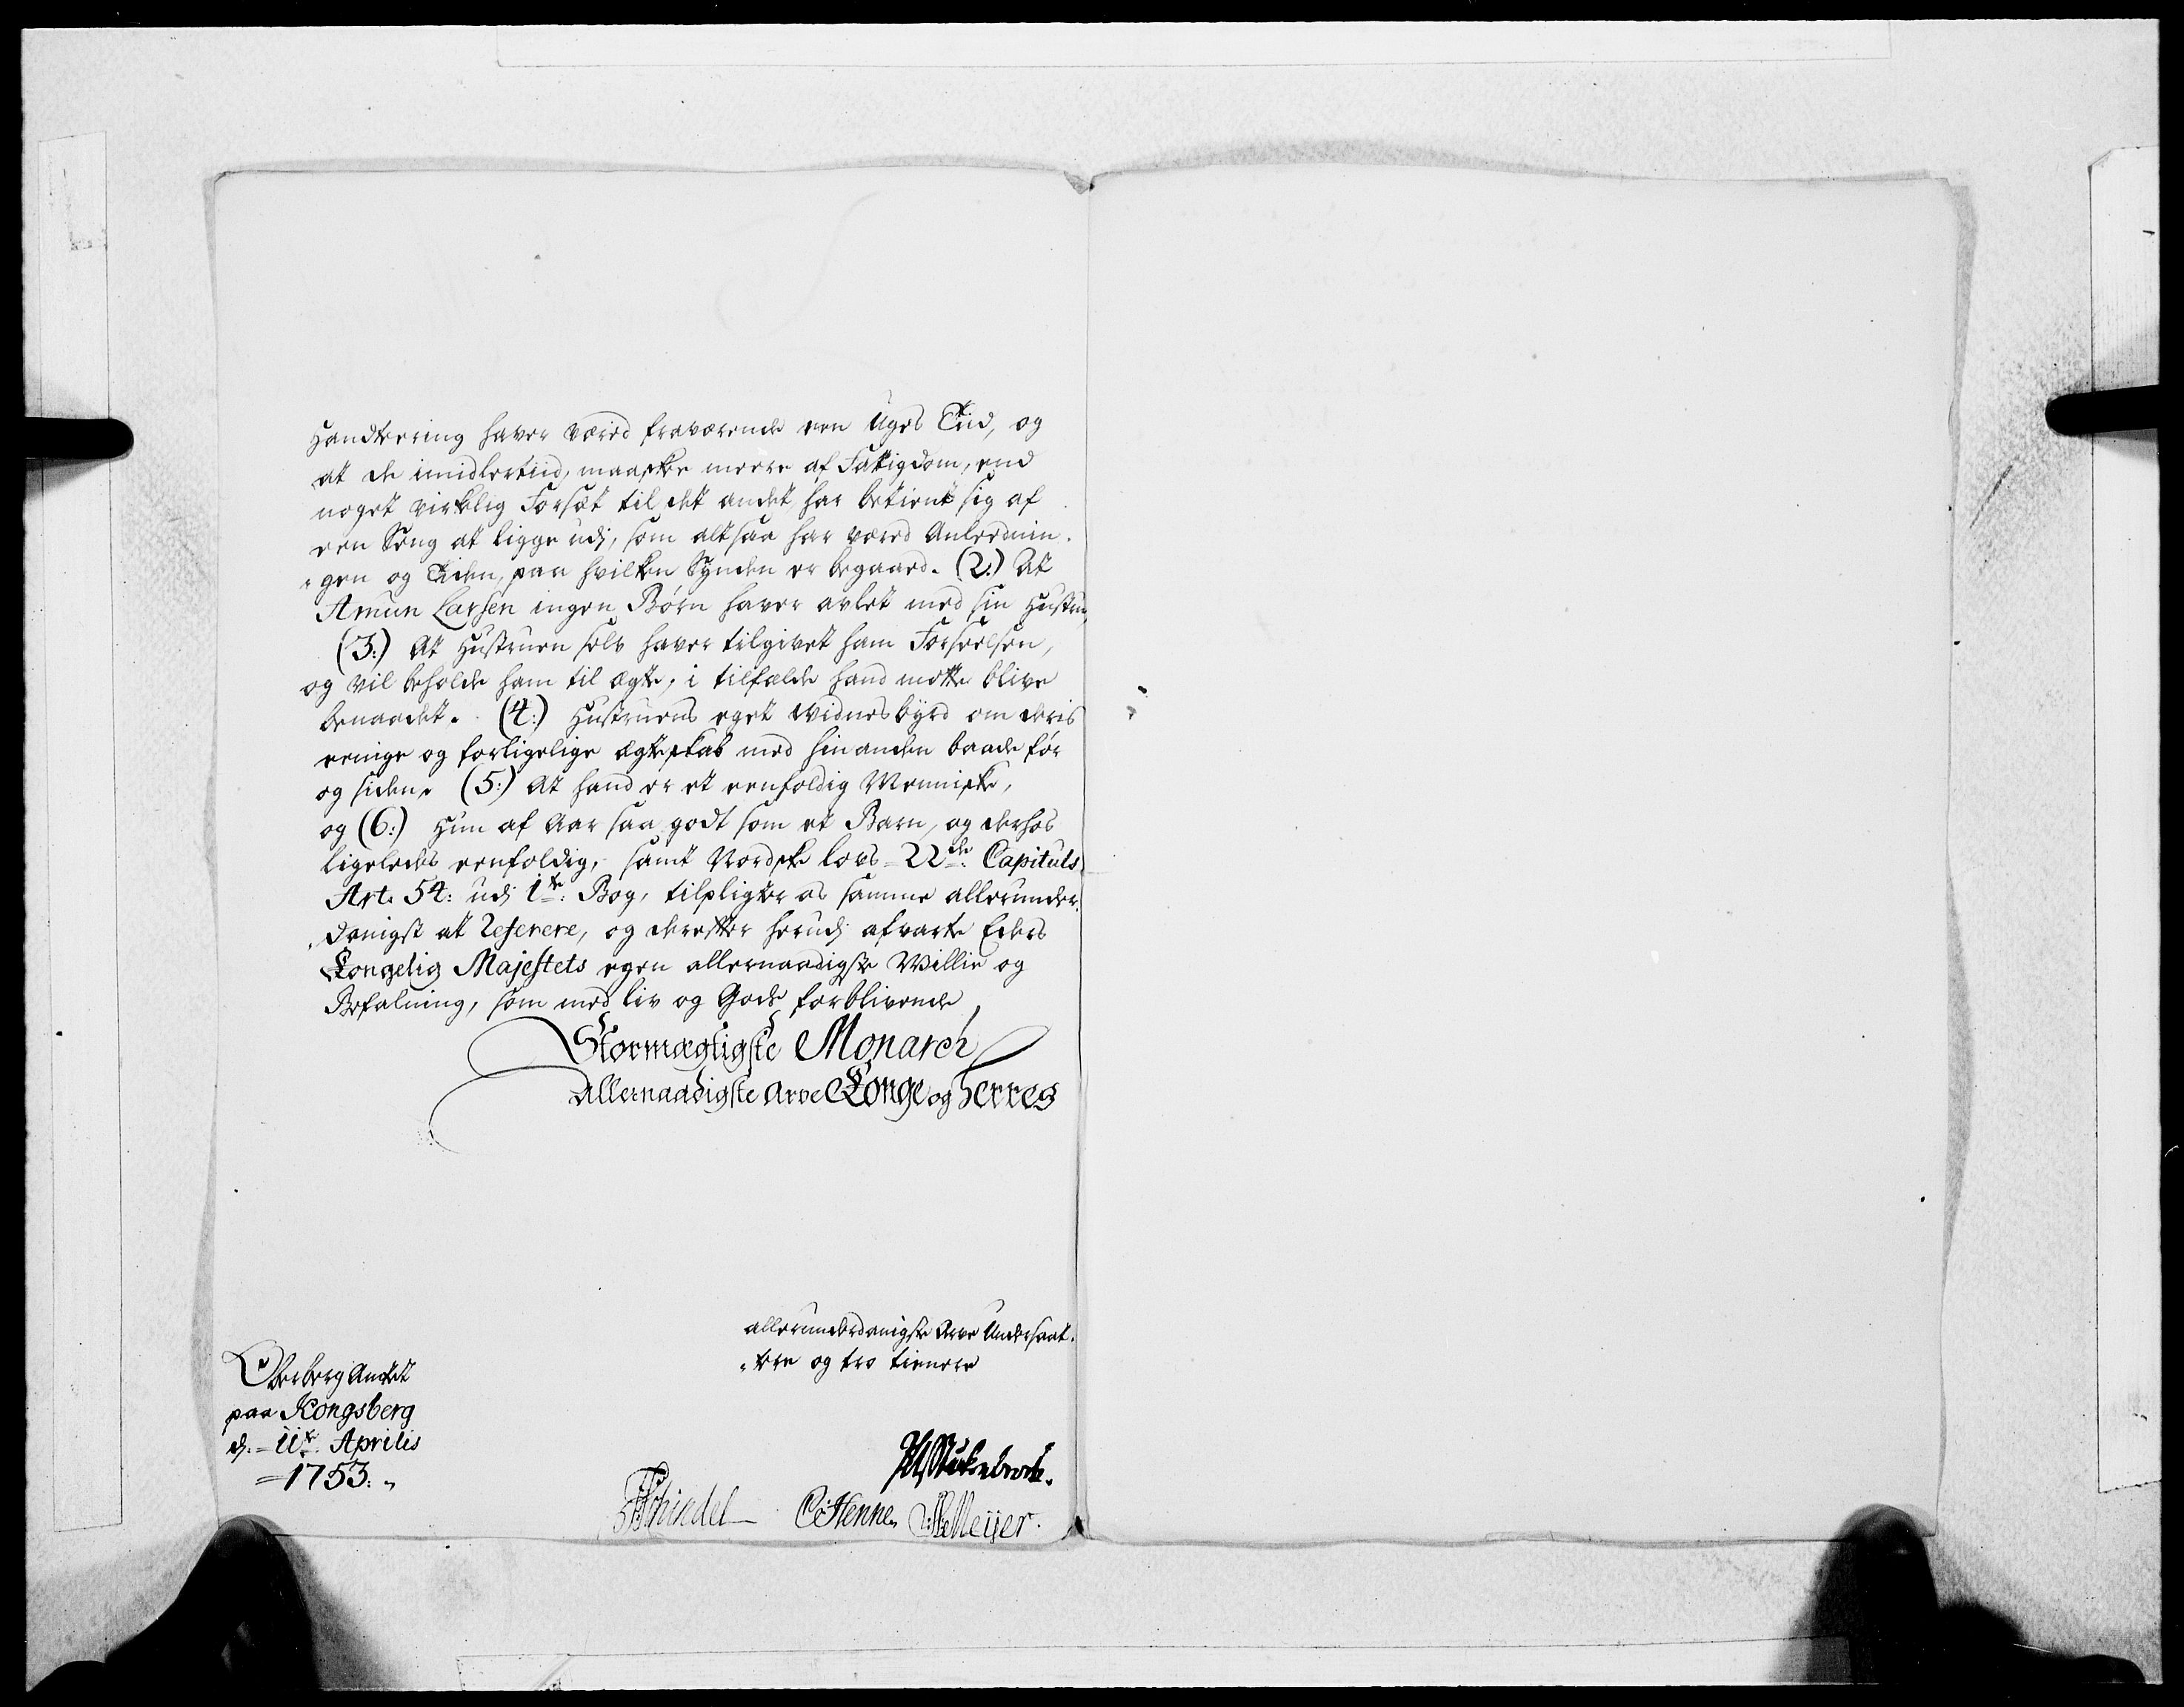 Handtering haver værid fraværende een Uges Tiid, og
at de imidlertiid, maaske meere af Fattigdom, end
noget virklig Forsæt til det andet, har betient sig af
een Seng at ligge udj, som altsaa har væred Anleednin-
-gen og Tiden, paa hvilken Synden er begaaed. (2.) At
Amun Larsen ingen Børn haver avlet med sin Hustrue,
(3:) At Hustruen selv haver tilgivet ham Forseelsen,
og vil beholde ham til Ægte, i tilfælde hand motte blive
benaadet. (4:) Hustruens eget Vidnesbyrd om deris
eenige og forligelige Ægteskab med hinanden baade før
og siden. (5:) At hand er et eenfoldig Menniske,
og (6:) Hun af Aar saa godt som et Barn, og derhos
ligeledes eenfoldig, samt Nordske Lovs 22de Capituls
Art. 54: udj 1te Bog, tilpligter os samme allerunder-
-danigst at Referere, og derefter herudj afvarte Eders
Kongelig Majestets egen allernaadigste Willie og
Befalning, som med liv og Gods forblivende
Stormægtigste Monarch
Allernaadigste Arve Konge og Herres
allerunderdanigste Arve Undersaat-
-tere og tro tienere
OberbergAmtet
paa Kongsberg
d. 11te Aprilis
1753.
Stukenbrock.
Schindel C: Henne Meijer.